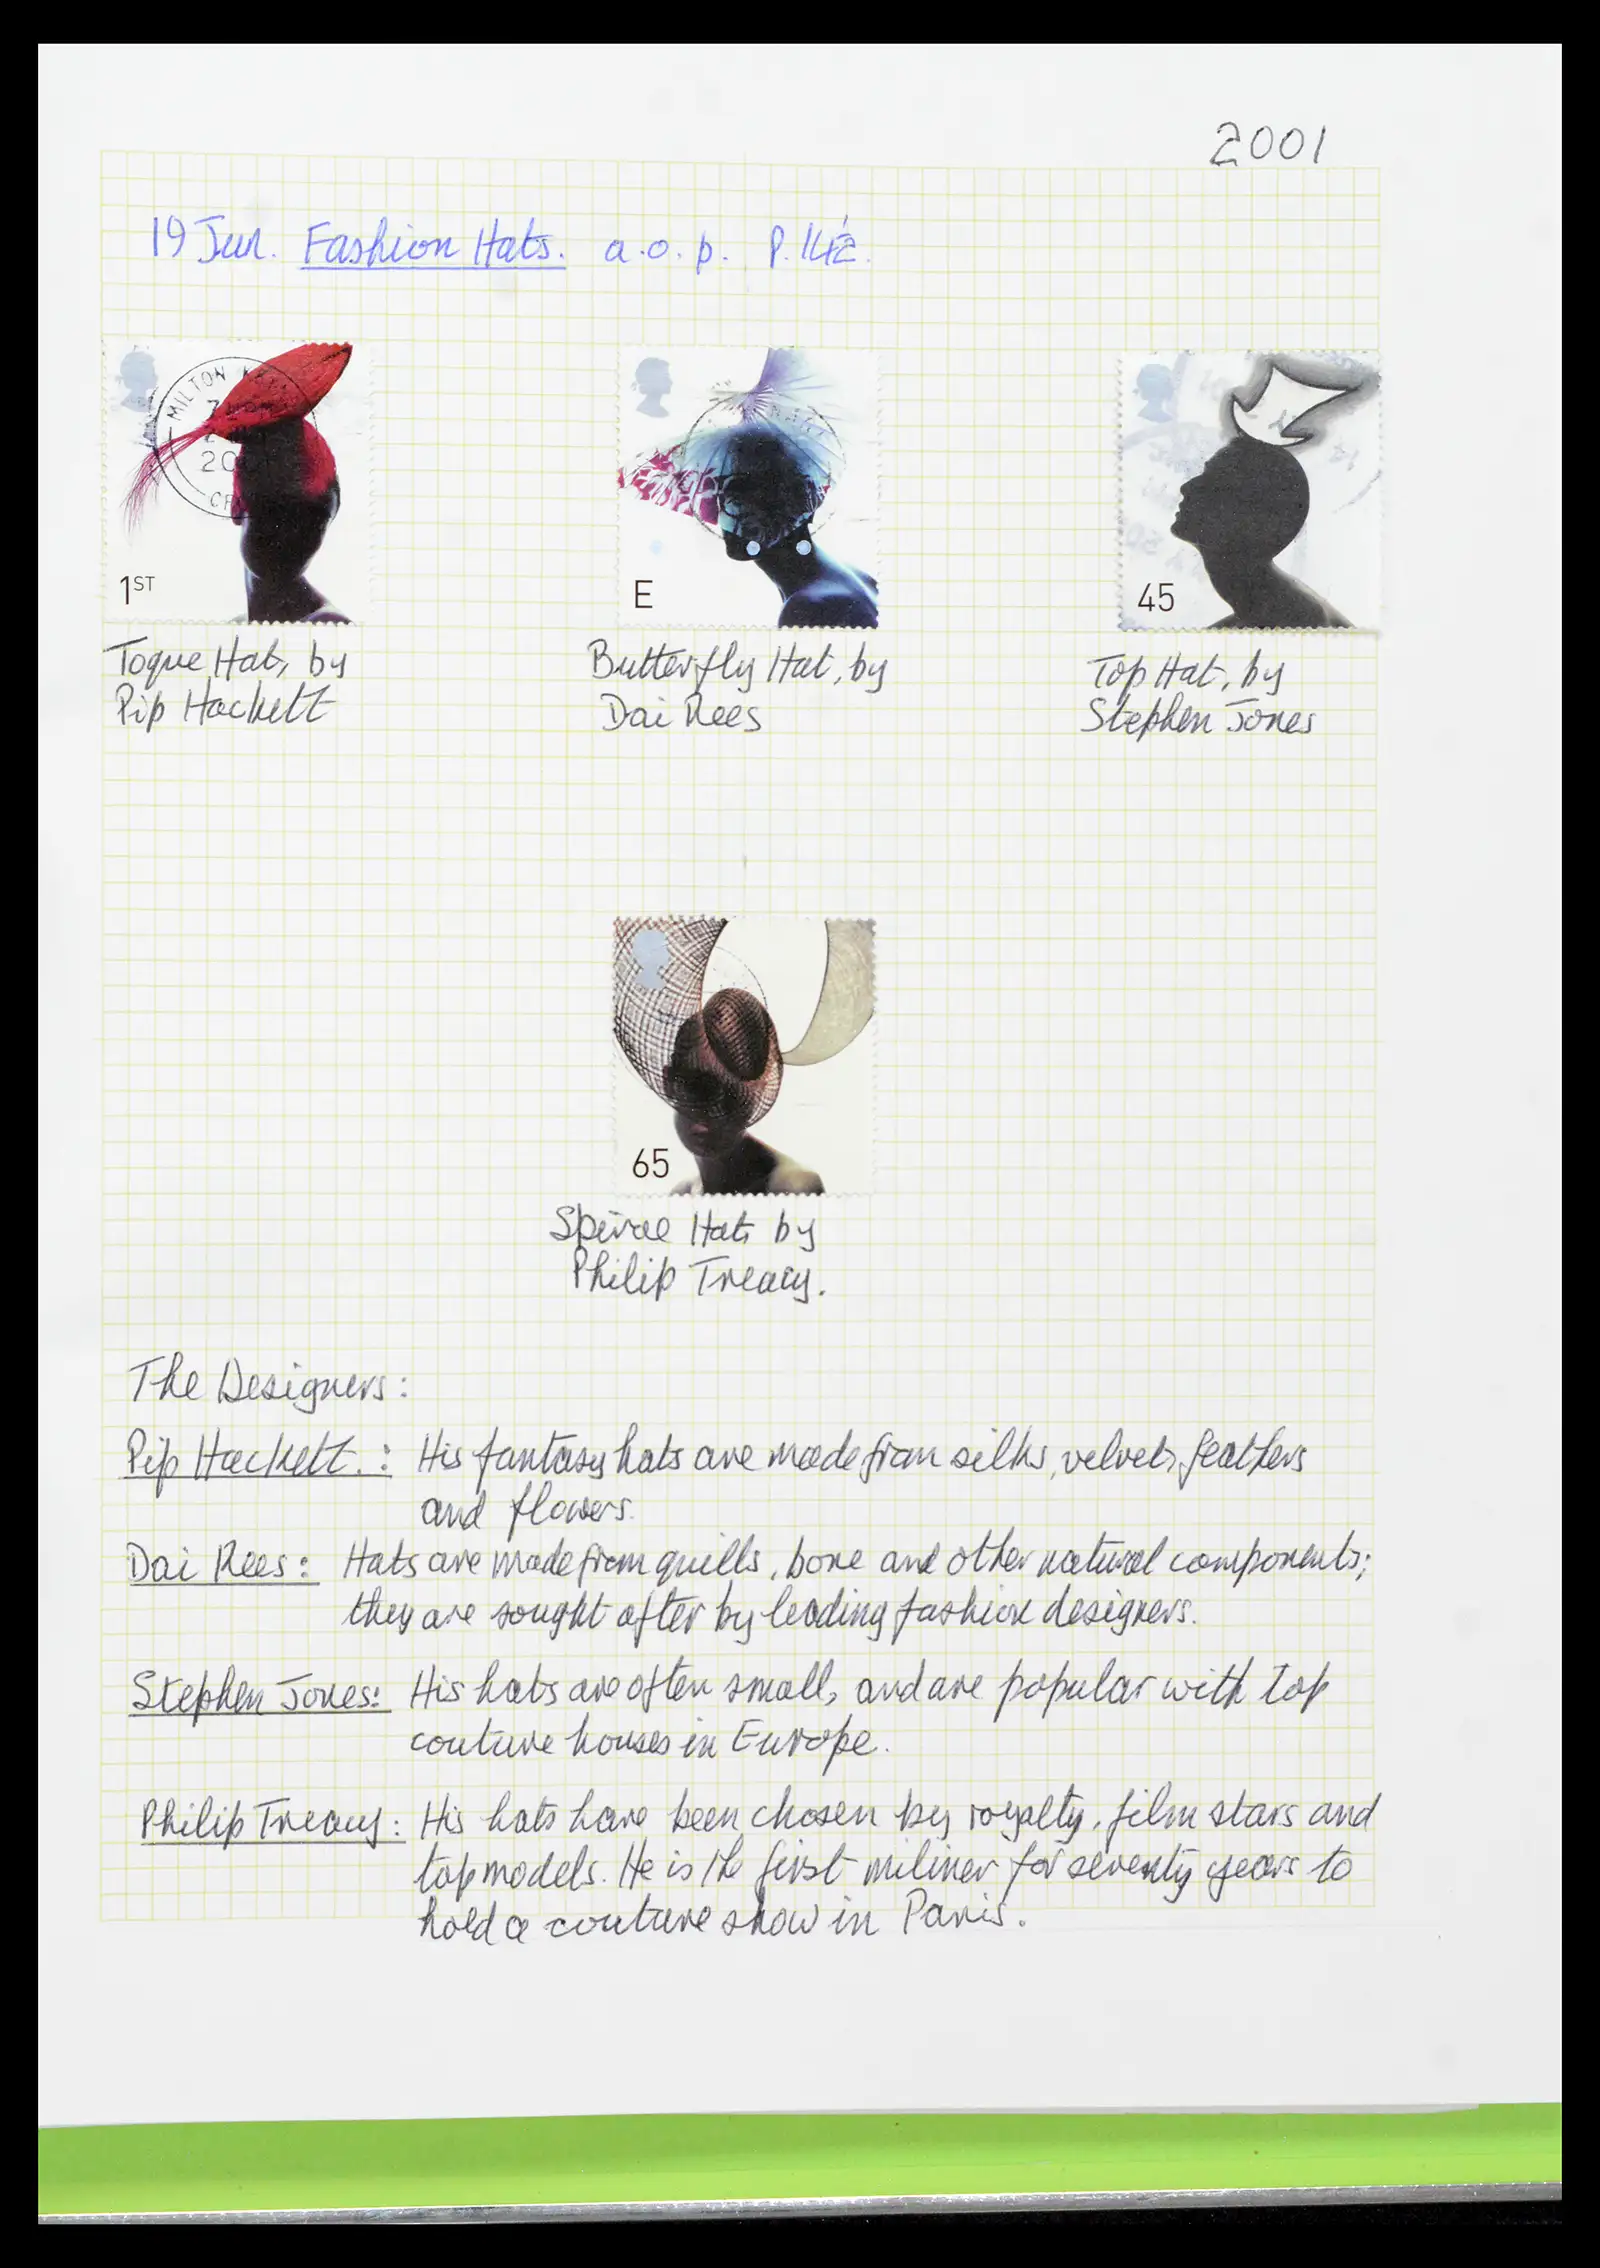 2001
19 Jun. Fashion Hats. a.o.p. P. 14½.
MILTON KEY
200
1ST
E
45
Toque Hat, by
Pip Hackett
Butterfly Hat, by
Dai Rees
Top Hat, by
Stephen Jones
65
Spiral Hat, by
Philip Treacy.
The Designers:
Pip Hackett.: His fantasy hats are made from silks, velvet, feathers
and flowers.
Dai Rees: Hats are made from quills, bone and other natural components;
they are sought after by leading fashion designers.
Stephen Jones: His hats are often small, and are popular with top
couture houses in Europe.
Philip Treacy: His hats have been chosen by royalty, film stars and
top models. He is the first miliner for seventy years to
hold a couture show in Paris.